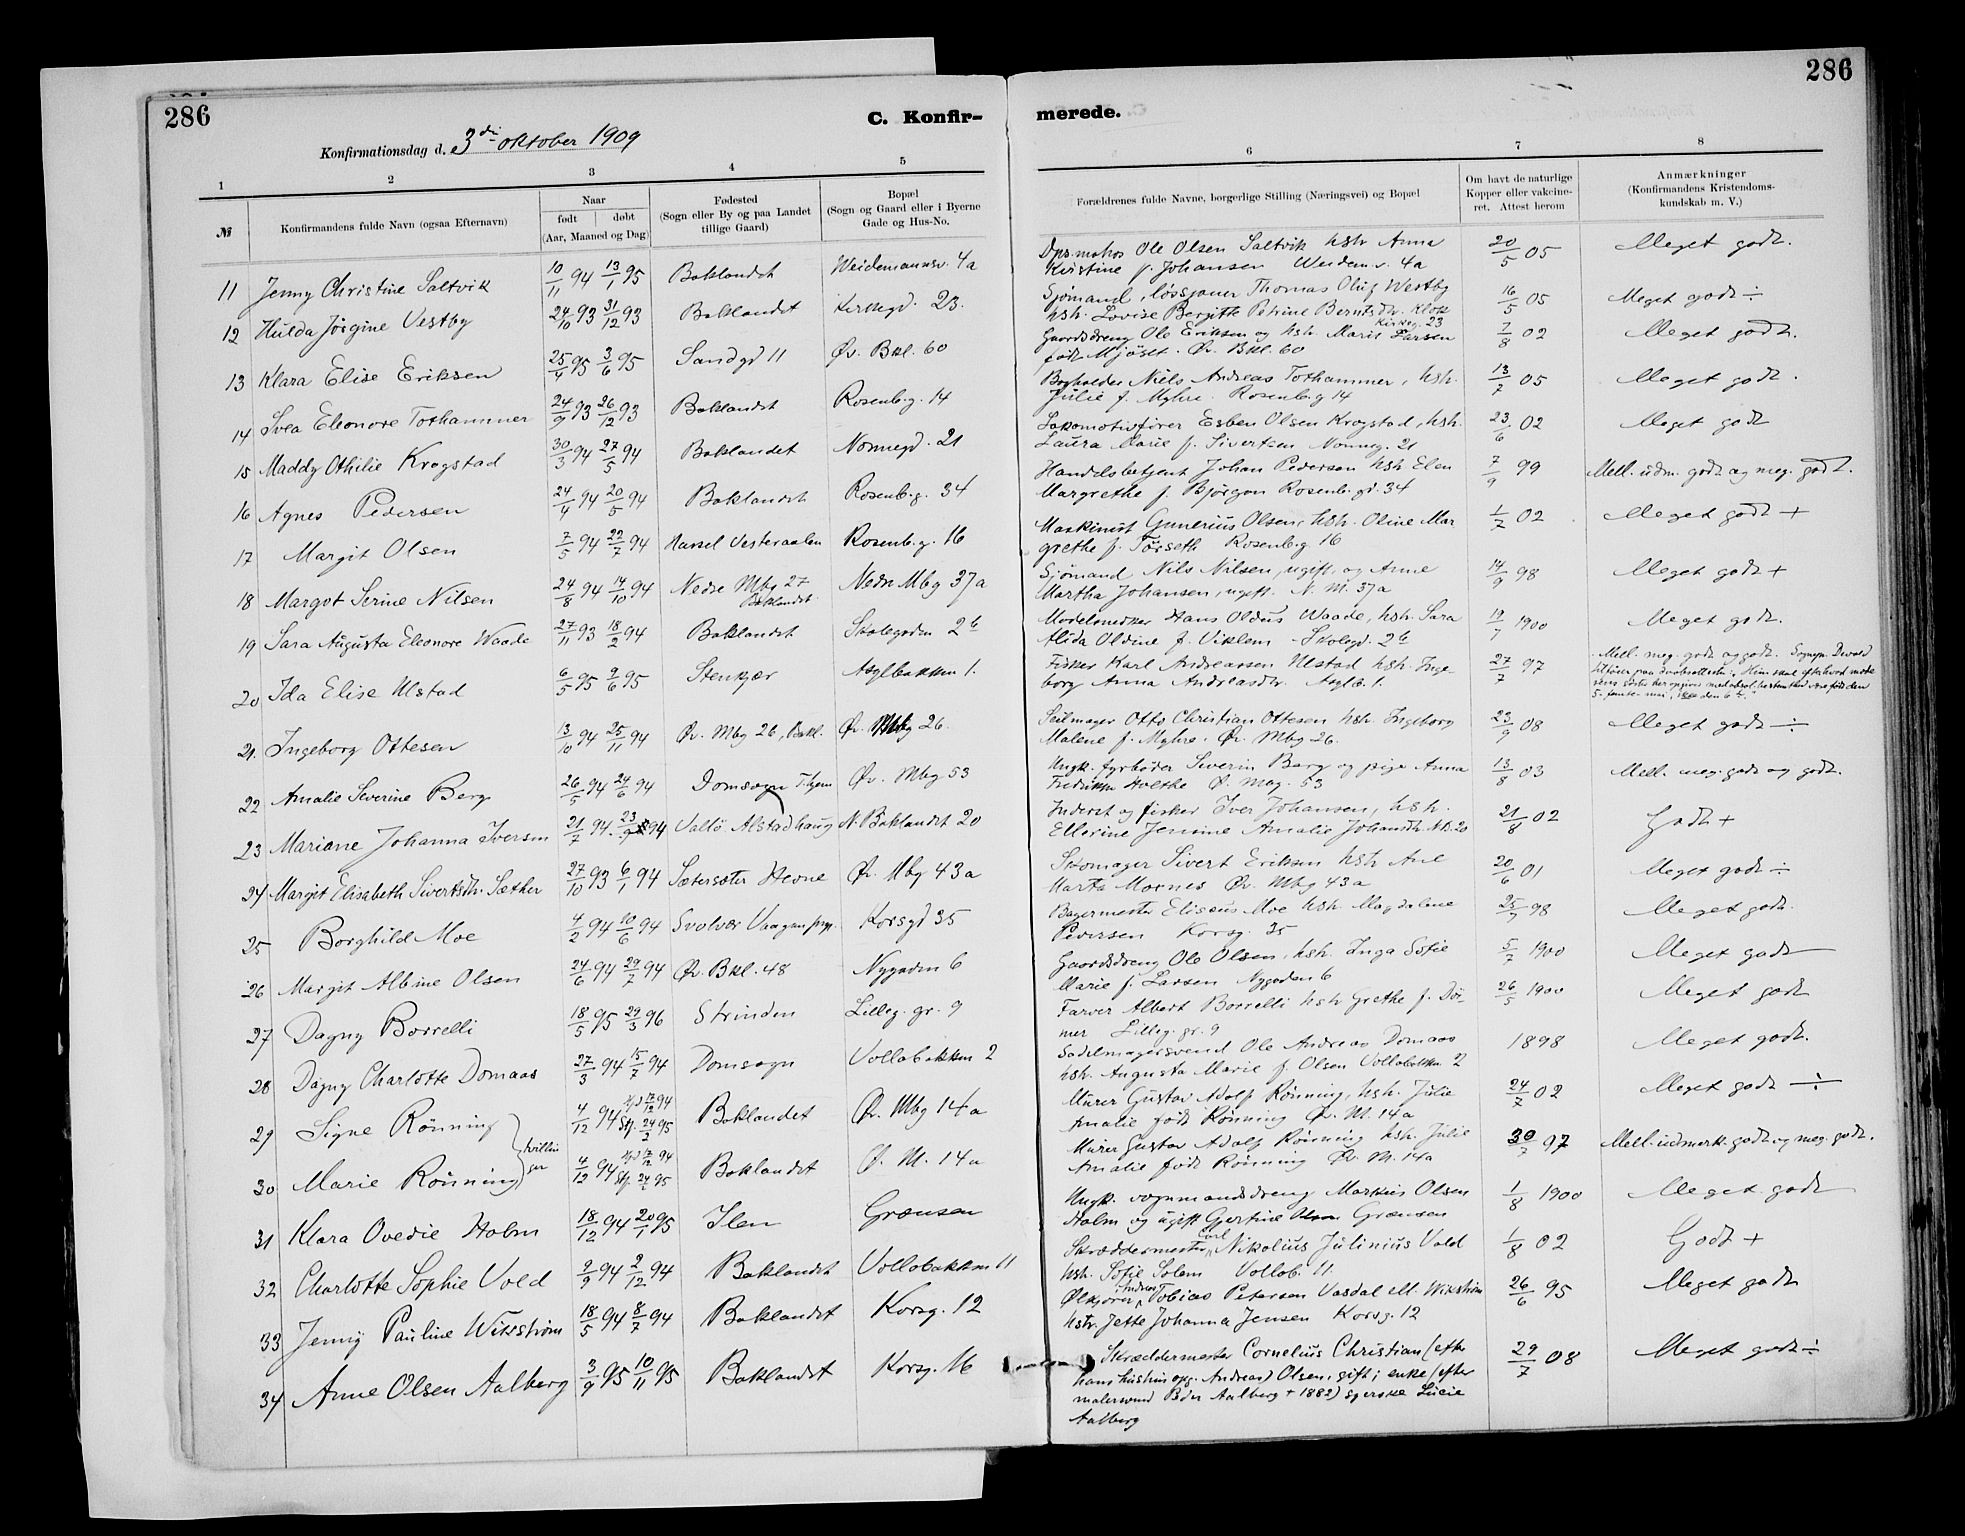 286
286
C. Konfir-
merede.
Konfirmationsdag d. 3di oktober 1909
1 2 3 4 5 6 7 8
№
Konfirmandens fulde Navn (ogsaa Efternavn)
Naar
født døbt
(Aar, Maaned og Dag)
Fødested
(Sogn eller By og paa Landet
tillige Gaard)
Bopæl
(Sogn og Gaard eller i Byerne
Gade og Hus-No.
Forældrenes fulde Navne, borgerlige Stilling (Næringsvei) og Bopæl
Om havt de naturlige
Kopper eller vakcine-
ret. Attest herom
Anmærkninger
(Konfirmandens Kristendoms-
kundskab m. V.)
11 Jenny Christine Saltvik 10/11 94 13/1 95 Baklandet Weidemannsv. 4a
Ole Olsen Saltvik hstr Anna 20/5 05 Meget godt.
Kristine f. Johansen Weidem.v. 4a
12 Hulda Jørgine Vestby 24/10 93 31/12 93 Baklandet Kirkegd. 23.
Sjømand, løssjauer Thomas Oluf Westby 16/5 05 Meget godt ÷
hstr. Lovise Bergitte Petrine Berntsdtr. Klok
Kirkeg. 23
13 Klara Elise Eriksen 25/4 95 3/6 95 Sandgd 11 Øv. Bkl. 60
Gaardsdreng Ole Eriksen og hstr. Marit Larsen 7/8 02 Meget godt.
født Mjøset. Øv. Bkl. 60
14 Svea Eleonore Torhammer 24/9 93 26/12 93 Baklandet Rosenb.g. 14
Bogholder Niels Andreas Torhammer, hstr. 13/7 05 Meget godt.
Julie f. Myhre. Rosenb.g 14
15 Maddy Othilie Krogstad 30/3 94 27/5 94 Baklandet Nonnegd. 21
Lokomotivfører Esben Olsen Krogstad, hstr. 23/6 02 Meget godt
Laura Marie f. Sivertsen, Nonneg. 21
16 Agnes Pedersen 24/4 94 20/5 94 Baklandet Rosenb.g. 34
Handelsbetjent Johan Pedersen hstr Elen 7/9 99 Mell. udm. godt og meg. godt.
Margrethe f. Bjørgan Rosenb.gd. 34
17 Margit Olsen 7/5 94 22/7 94 Hassel Vesteraalen Rosenb.g. 16
Maskinist Gunerius Olsen, hstr. Oline Mar 1/7 02 Meget godt +
grethe f. Tørseth Rosenb.g. 16
18 Margot Serine Nilsen 24/8 94 14/10 94 Nedre Mbg 27 Baklandet. Nedre Mbg 37a
Sjømand Nils Nilsen, ugift, og Anne 14/9 98 Meget godt +
Martha Johansen, ugift. N. M. 37a
19 Sara Augusta Eleonore Waade 27/11 93 18/2 94 Baklandet Skolegaden 2b
Modelsnedker Hans Oldus Waade, hstr. Sara 19/7 1900 Meget godt.
Alida Oldine f. Viklem - Skolegd. 2b
20 Ida Elise Ulstad 6/5 95 9/6 95 Stenkjær Asylbakken 1.
Fisker Karl Andreassen Ulstad hstr. Inge- 27/7 97 Mell. meg. godt og godt.
borg Anna Andreasdtr. Asylb. 1.
21. Ingeborg Ottesen 13/10 94 25/11 94 Øv. Mbg 26, Bakl. Øv. Mbg 26.
Seilmager Otto Christian Ottesen hstr. Ingeborg 23/9 08 Meget godt ÷
Malene f. Myhre. Øv. Mbg 26.
22 Amalie Severine Berg 26/5 94 24/6 94 Domsogn T.hjem Øv. Mbg 53
Ungk. fyrbøder Severin Berg og pige Anna 13/8 03 Mell. meg. godt og godt.
Fredrikke Holthe Ø. Møg. 53
23 Mariane Johanna Iversen 21/7 94 23/9 94 Vallø Alstadhaug N. Baklandet 20
Inderst og fisker Iver Johansen, hstr. 21/8 02 Godt +
Ellerine Jensine Amalie Johansdtr. N.B. 20
24 Margit Elisabeth Sivertsdtr. Sæther 27/10 93 6/1 94 Sætersæter Hevne Øv. Mbg 43a
Skomager Sivert Eriksen hstr Ane 20/6 01 Meget godt ÷
Marta Moenes Øv. Mbg 43a
25 Borghild Moe 4/2 94 10/6 94 Svolvær Vaagan prgj. Korsgd 35
Bagermester Eliseus Moe hstr Magdalene 25/7 98 Meget godt.
Pedersen Korsg. 35
26 Margit Albine Olsen 24/6 94 29/7 94 Øv. Bkl. 48 Nygaden 6
Gaardsdreng Ole Olsen, hstr. Inga Sofie 5/7 1900 Meget godt
Marie f. Larsen Nygaden 6
27 Dagny Borrelli 18/5 95 29/3 96 Strinden Lilleg. gr. 9
Farver Albert Borrelli hstr Grethe f. Dør- 26/5 1900 Meget godt
mer Lilleg. gr. 9
28 Dagny Charlotte Domaas 27/3 94 15/7 94 Domsogn Vollabakken 2
Sadelmagersvend Ole Andreas Domaas 1898 Meget godt.
hstr. Augusta Marie f. Olsen Vollabakken 2
29 Signe Rønning tvillinger 4/12 94 17/12 94 24/2 95 Baklandet Øv. Mbg 14a
Murer Gustav Adolf Rønning, hstr. Julie 24/7 02 Meget godt ÷
Amalie født Rønning Øv. M. 14a
30 Marie Rønning 4/12 94 17/12 94 24/2 95 Baklandet Ø. M. 14a
Murer Gustav Adolf Rønning hstr. Julie 30/7 97 Mell. udmerk. godt og meg. godt.
Amalie født Rønning Øv. M. 14a
31 Klara Ovedie Holm 18/12 94 20/1 95 Ilen Grænsen
Ungk. vognmandsdreng Markus Olsen 1/8 1900 Meget godt
Holm og ugift Gjertine Olsen Grænsen
32 Charlotte Sophie Vold 9/9 94 2/12 94 Baklandet Vollabakken 11
Skræddermester Carl Nikolius Julinius Vold 1/8 02 Godt +
hstr. Sofie Solem Vollab. 11.
33 Jenny Pauline Wikstrøm 18/5 94 8/7 94 Baklandet Korsg. 12
Ølkjører Andreas Tobias Petersen Vasdal ell. Wikstrøm 26/6 95 Meget godt
hstr. Jette Johanna Jensen Korsg. 12
34 Anne Olsen Aalberg 3/9 95 10/11 95 Baklandet Korsg. 16
Skræddermester Cornelius Christian (efter 29/7 08 Meget godt ÷
hans hustrus opg. Andreas) Olsen, gift; enke (efter
malersvend Peder Aalberg + 1882) syerske Lucie
Aalberg